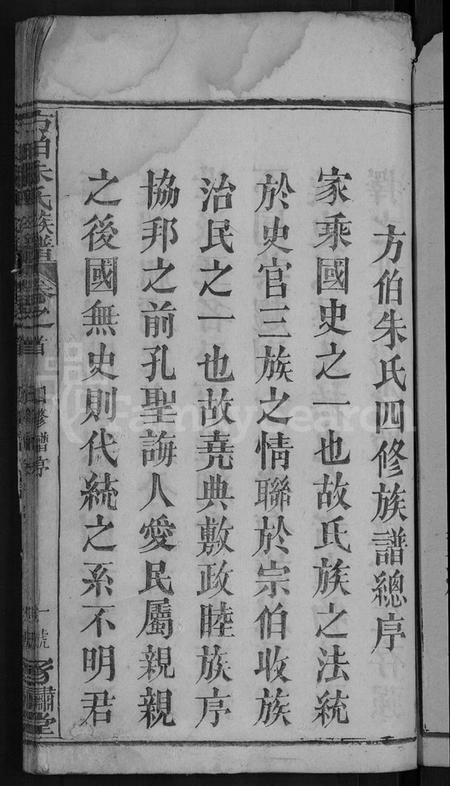 方伯朱氏四修族譜總序
家乘國史之一也故氏族之法統
於史官三族之情聯於宗伯收族
治民之一也故堯典敷政睦族序
協邦之前孔聖誨人愛民屬親親
之後國無史則代統之系不明君
方伯朱氏族譜
卷之首
四修譜序
一號
堂
FamilySearch